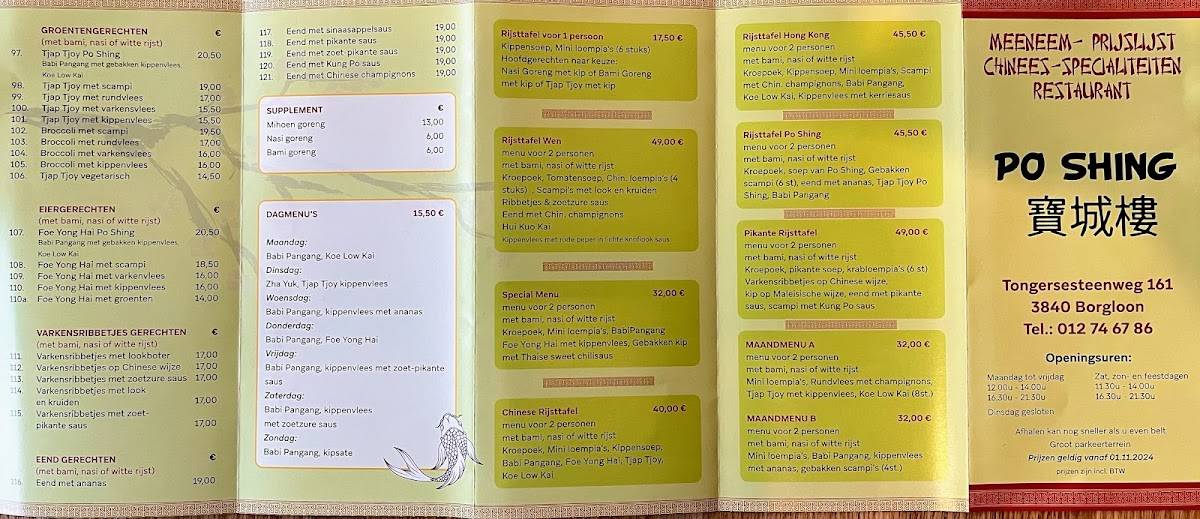 GROENTENGERECHTEN €
(met bami, nasi of witte rijst)
97. Tjap Tjoy Po Shing 20,50
Babi Pangang met gebakken kippenvlees,
Koe Low Kai
98. Tjap Tjoy met scampi 19,00
99. Tjap Tjoy met rundvlees 17,00
100. Tjap Tjoy met varkensvlees 15,50
101. Tjap Tjoy met kippenvlees 15,50
102. Broccoli met scampi 19,50
103. Broccoli met rundvlees 17,00
104. Broccoli met varkensvlees 16,00
105. Broccoli met kippenvlees 16,00
106. Tjap Tjoy vegetarisch 14,50
EIERGERECHTEN €
(met bami, nasi of witte rijst)
107. Foe Yong Hai Po Shing 20,50
Babi Pangang met gebakken kippenvlees,
Koe Low Kai
108. Foe Yong Hai met scampi 18,50
109. Foe Yong Hai met varkenvlees 16,00
110. Foe Yong Hai met kippenvlees 16,00
110a. Foe Yong Hai met groenten 14,00
VARKENSRIBBETJES GERECHTEN €
(met bami, nasi of witte rijst)
111. Varkensribbetjes met lookboter 17,00
112. Varkensribbetjes op Chinese wijze 17,00
113. Varkensribbetjes met zoetzure saus 17,00
114. Varkensribbetjes met look
en kruiden 17,00
115. Varkensribbetjes met zoet-
pikante saus 17,00
EEND GERECHTEN €
(met bami, nasi of witte rijst)
116. Eend met ananas 19,00
117. Eend met sinaasappelsaus 19,00
118. Eend met pikante saus 19,00
119. Eend met zoet-pikante saus 19,00
120. Eend met Kung Po saus 19,00
121. Eend met Chinese champignons 19,00
SUPPLEMENT €
Mihoen goreng 13,00
Nasi goreng 6,00
Bami goreng 6,00
DAGMENU'S 15,50 €
Maandag:
Babi Pangang, Koe Low Kai
Dinsdag:
Zha Yuk, Tjap Tjoy kippenvlees
Woensdag:
Babi Pangang, kippenvlees met ananas
Donderdag:
Babi Pangang, Foe Yong Hai
Vrijdag:
Babi Pangang, kippenvlees met zoet-pikante
saus
Zaterdag:
Babi Pangang, kippenvlees
met zoetzure saus
Zondag:
Babi Pangang, kipsate
Rijsttafel voor 1 persoon 17,50 €
Kippensoep, Mini loempia's (6 stuks)
Hoofdgerechten naar keuze:
Nasi Goreng met kip of Bami Goreng
met kip of Tjap Tjoy met kip
Rijsttafel Wen 49,00 €
menu voor 2 personen
met bami, nasi of witte rijst
Kroepoek, Tomatensoep, Chin. loempia's (4
stuks) , Scampi's met look en kruiden
Ribbetjes & zoetzure saus
Eend met Chin. champignons
Hui Kuo Kai
Kippenvlees met rode peper in lichte knoflook saus
Special Menu 32,00 €
menu voor 2 personen
met bami, nasi of witte rijst
Kroepoek, Mini loempia's, BabiPangang
Foe Yong Hai met kippenvlees, Gebakken kip
met Thaise sweet chilisaus
Chinese Rijsttafel 40,00 €
menu voor 2 personen
met bami, nasi of witte rijst
Kroepoek, Mini loempia's, Kippensoep,
Babi Pangang, Foe Yong Hai, Tjap Tjoy,
Koe Low Kai
Rijsttafel Hong Kong 45,50 €
menu voor 2 personen
met bami, nasi of witte rijst
Kroepoek, Kippensoep, Mini loempia's, Scampi
met Chin. champignons, Babi Pangang,
Koe Low Kai, Kippenvlees met kerriesaus
Rijsttafel Po Shing 45,50 €
menu voor 2 personen
met bami, nasi of witte rijst
Kroepoek, soep van Po Shing, Gebakken
scampi (6 st), eend met ananas, Tjap Tjoy Po
Shing, Babi Pangang
Pikante Rijsttafel 49,00 €
menu voor 2 personen
met bami, nasi of witte rijst
Kroepoek, pikante soep, krabloempia's (6 st)
Varkensribbetjes op Chinese wijze,
kip op Maleisische wijze, eend met pikante
saus, scampi met Kung Po saus
MAANDMENU A 32,00 €
menu voor 2 personen
met bami, nasi of witte rijst
Mini loempia's, Rundvlees met champignons,
Tjap Tjoy met kippenvlees, Koe Low Kai (8st.)
MAANDMENU B 32,00 €
menu voor 2 personen
met bami, nasi of witte rijst
Mini loempia's, Babi Pangang, kippenvlees
met ananas, gebakken scampi's (4st.)
MEENEEM- PRIJSLIJST
CHINEES-SPECIALITEITEN
RESTAURANT
PO SHING
寶城樓
Tongersesteenweg 161
3840 Borgloon
Tel.: 012 74 67 86
Openingsuren:
Maandag tot vrijdag Zat, zon- en feestdagen
12.00u - 14.00u 11.30u - 14.00u
16.30u - 21.30u 16.30u - 21.30u
Dinsdag gesloten
Afhalen kan nog sneller als u even belt
Groot parkeerterrein
Prijzen geldig vanaf 01.11.2024
prijzen zijn incl. BTW